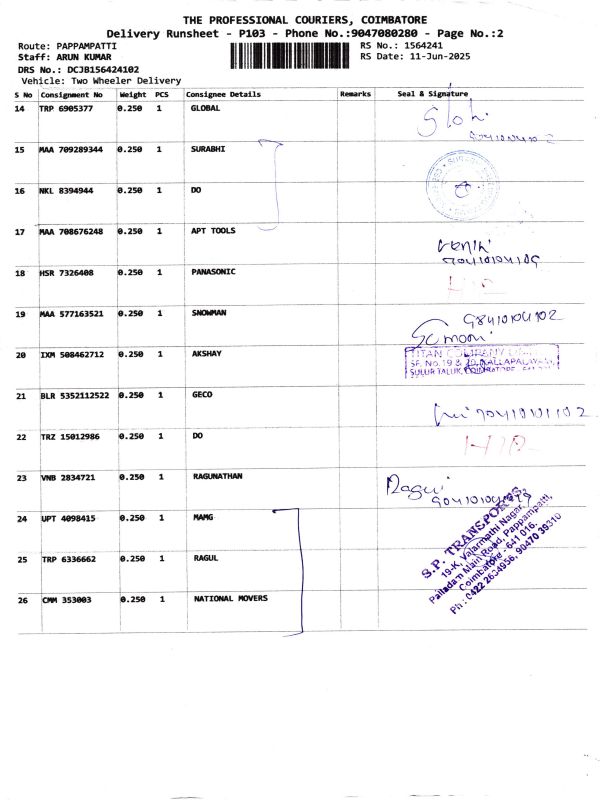 THE PROFESSIONAL COURIERS, COIMBATORE
Delivery Runsheet - P103 - Phone No.:9047080280 - Page No.:2
Route: PAPPAMPATTI
Staff: ARUN KUMAR
DRS No.: DCJB156424102
Vehicle: Two Wheeler Delivery
RS No.: 1564241
RS Date: 11-Jun-2025
S No Consignment No Weight PCS Consignee Details Remarks Seal & Signature
14 TRP 6905377 0.250 1 GLOBAL
15 MAA 709289344 0.250 1 SURABHI
16 NKL 8394944 0.250 1 DO
17 MAA 708676248 0.250 1 APT TOOLS
18 HSR 7326408 0.250 1 PANASONIC
19 MAA 577163521 0.250 1 SNOWMAN
20 IXM 508462712 0.250 1 AKSHAY
TITAN COMPANY
SF. No. 19 & 20, KALLAPALAYAM,
SULUR TALUK, COIMBATORE
21 BLR 5352112522 0.250 1 GECO
22 TRZ 15012986 0.250 1 DO
23 VNB 2834721 0.250 1 RAGUNATHAN
Ragu
24 UPT 4098415 0.250 1 MAMG
25 TRP 6336662 0.250 1 RAGUL
26 CMM 353003 0.250 1 NATIONAL MOVERS
S.P. TRANSPORTS,
19-K, Valarmathi Nagar,
Palladam Main Road, Pappampatti,
Coimbatore - 641 016.
Ph : 0422 2634956, 90470 39310